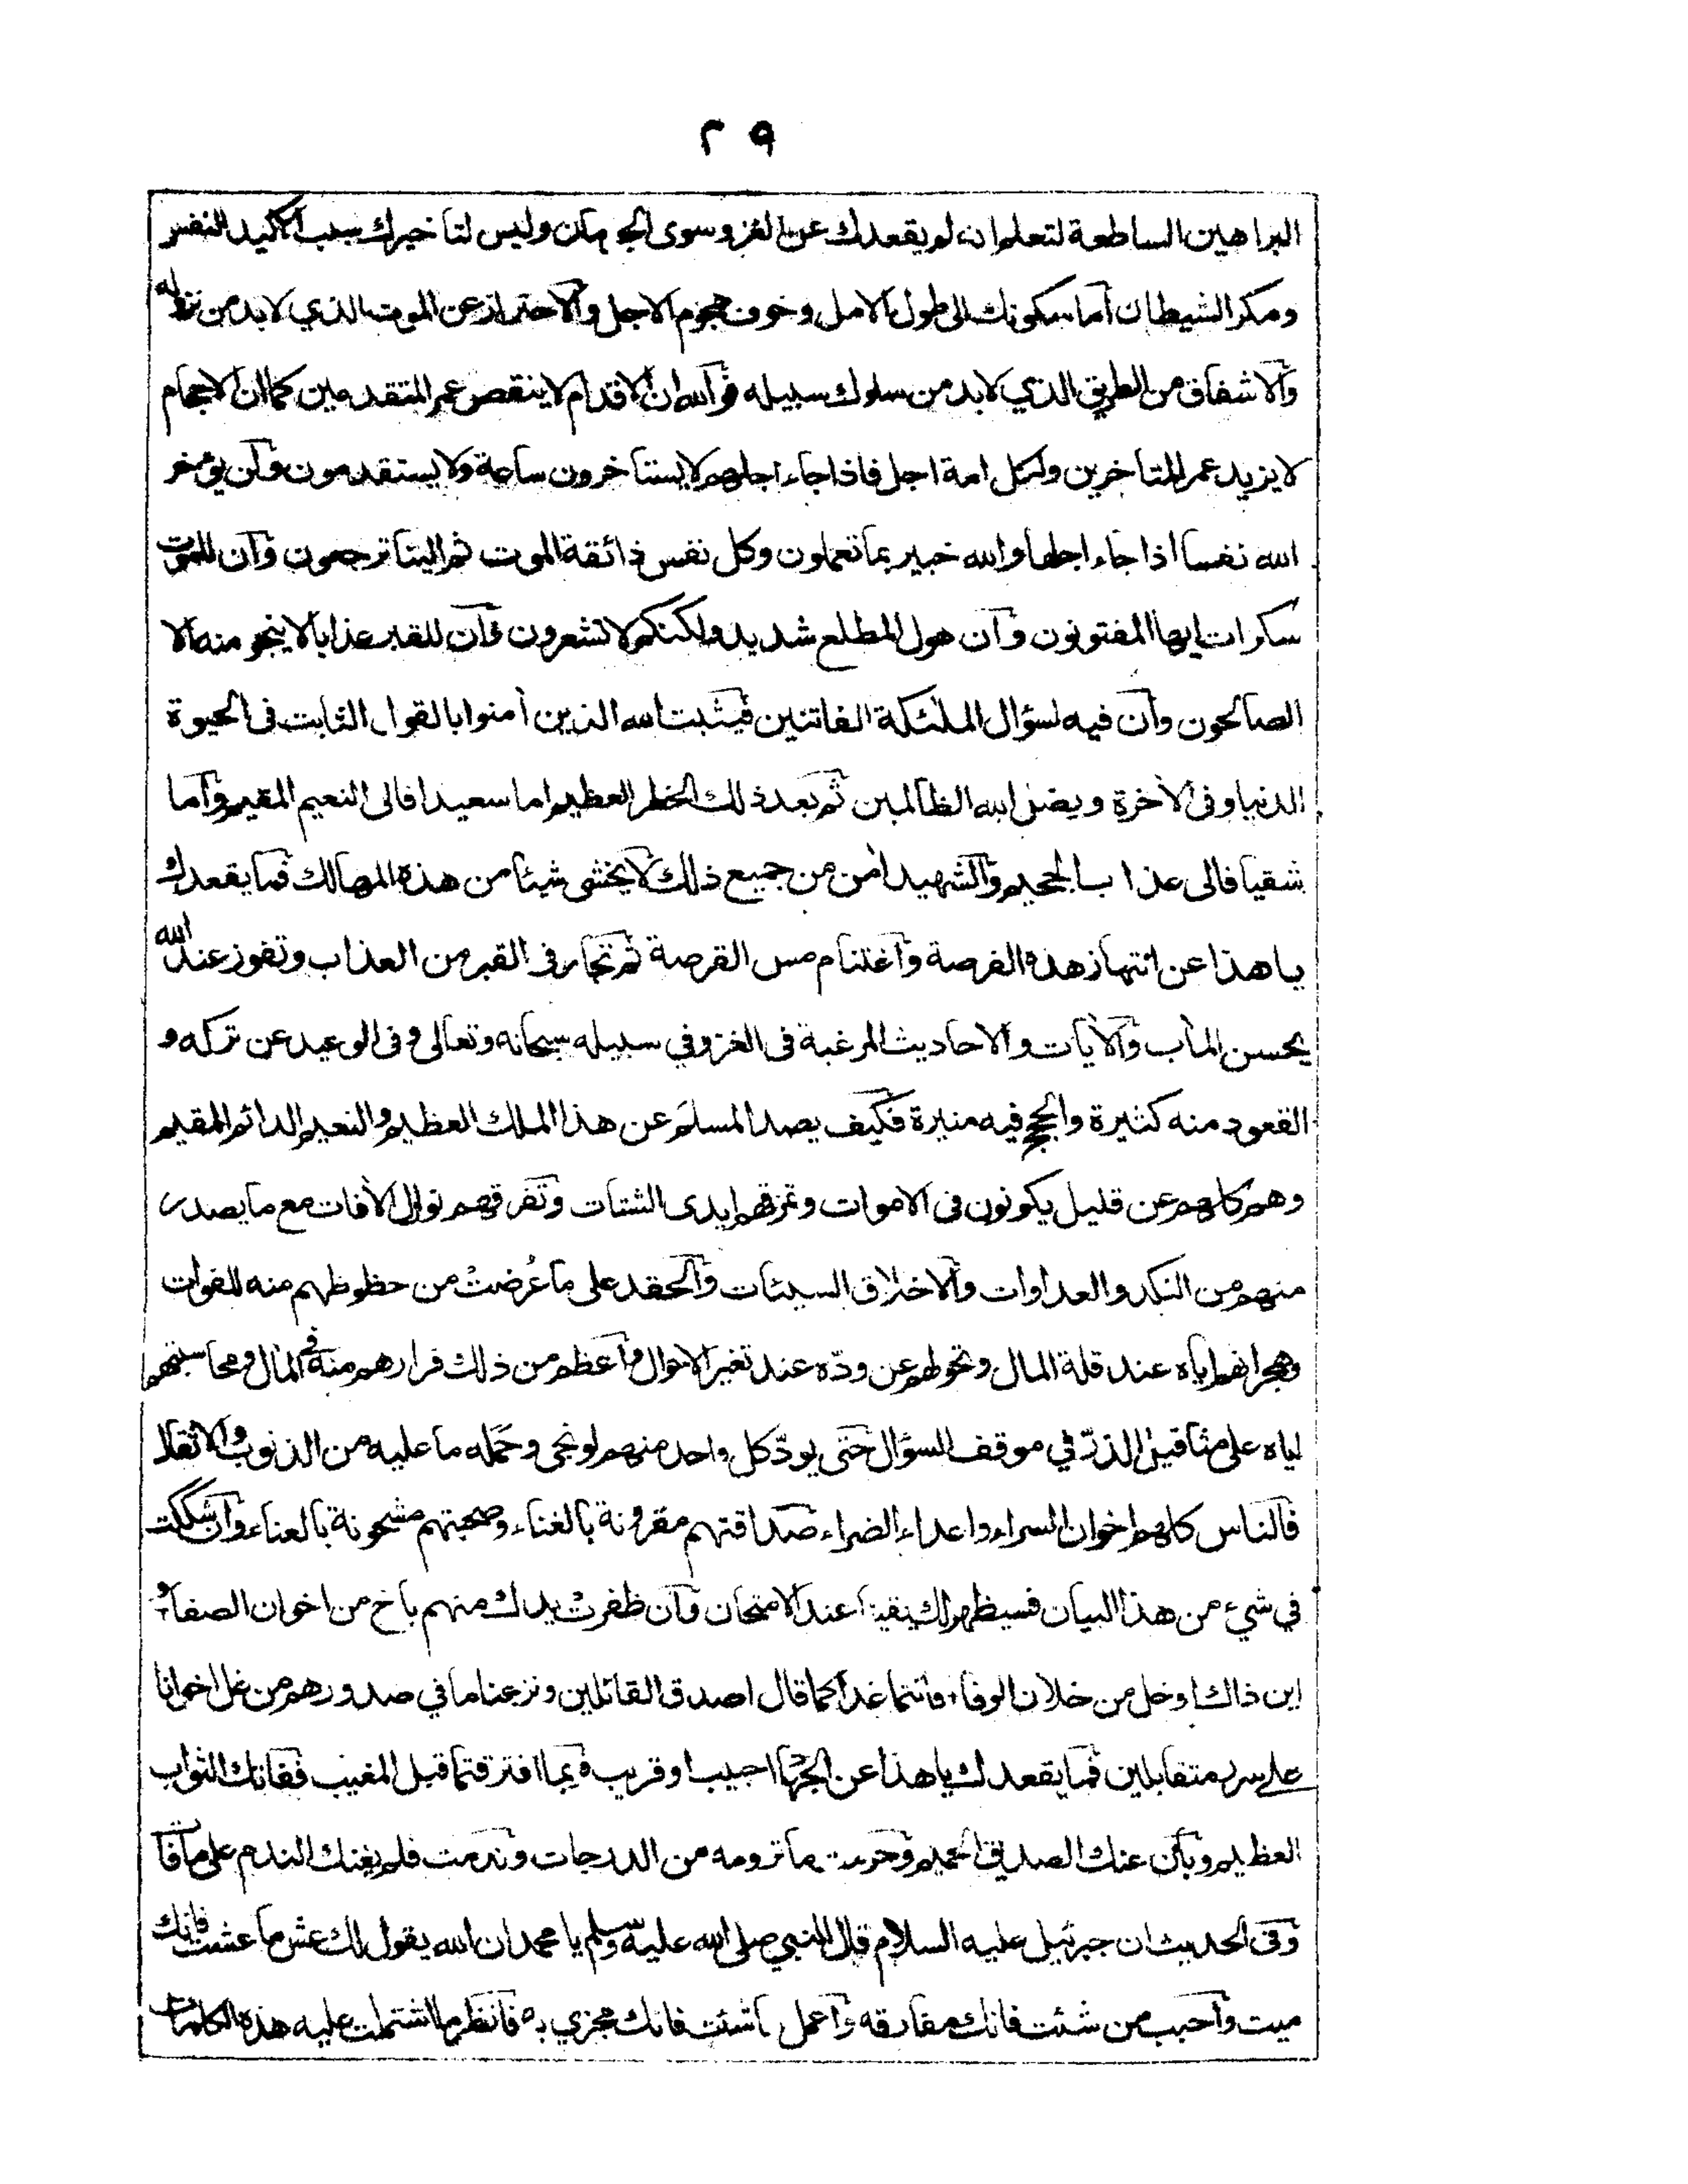 ٢٩
البراهين الساطعة لتعلم انه لم يقعدك عن الغزو سوى الحرمان وليس لتأخيرك سبب الا كيد النفس
ومكر الشيطان أما سكونك الى طول الامل وخوف هجوم الاجل والاحتراز عن الموت الذي لابد من نزوله
والاشفاق من الطريق الذي لابد من سلوك سبيله فوالله ان الاقدام لا ينقص عمر المتقدمين كما ان الاحجام
لا يزيد عمر المتاخرين ولكل امة اجل فاذا جاء اجلهم لا يستاخرون ساعة ولا يستقدمون ولن يؤخر
الله نفسا اذا جاء اجلها والله خبير بما تعملون وكل نفس ذائقة الموت ثم الينا ترجعون وان للموت
سكرات ايها المفتونون وان هول المطلع شديد ولكنكم لا تشعرون وان للقبر عذابا لا ينجو منه الا
الصالحون وان فيه لسؤال الملئكة الفاتنين فيثبت الله الذين أمنوا بالقول الثابت فى الحيوة
الدنيا وفى الأخرة ويضل الله الظالمين ثم بعد ذلك الخطر العظيم اما سعيدا فالى النعيم المقيم واما
شقيا فالى عذاب الجحيم والشهيد أمن من جميع ذلك لا يخشى شيئا من هذه المهالك فما يقعدك
يا هذا عن انتهاز هذه الفرصة واغتنام مس القرصة ثم تجار فى القبر من العذاب وتفوز عند الله
بحسن المأب والأيات والاحاديث المرغبة فى الغزو في سبيله سبحانه وتعالى وفى الوعيد عن تركه و
القعود منه كثيرة والحجج فيه منيرة فكيف يصد المسلم عن هذا الملك العظيم والنعيم الدائم المقيم
وهم كلهم عن قليل يكونون فى الاموات وتمزقهم ايدى الشتات وتفرقهم نوازل الأفات مع ما يصدر
منهم من النكد والعداوات والاخلاق السيئات والحقد على ما عُرضتْ من حظوظهم منه للفوات
وهجرانهم اياه عند قلة المال وتحولهم عن ودّه عند تغير الاحوال واعظم من ذلك فرارهم منه فى المأل ومحاسبتهم
اياه على مثاقيل الذرّ في موقف السؤال حتى يودّ كل واحد منهم لو نجى وحَمَّله ما عليه من الذنوب والاثقال
فالناس كلهم اخوان السراء واعداء الضراء صداقتهم مقرونة بالغناء وصحبتهم مشحونة بالعناء وان شككت
في شيء من هذا البيان فسيظهر لك يقينا عند الامتحان وان ظفرتْ يداك منهم باخ من اخوان الصفاء و
اين ذاك او خل من خلان الوفاء فانتما غدا كما قال اصدق القائلين ونزعنا ما في صدورهم من غل اخوانا
على سرر متقابلين فما يقعدك يا هذا عن الجهاد احبيب او قريب فربما افترقتما قبل المغيب ففاتك الثواب
العظيم وبان عنك الصديق الحميم وحرمت ما ترومه من الدرجات وندمت فلم يغنك الندم على ما فات
وفى الحديث ان جبرئيل عليه السلام قال للنبي صلى الله عليه وسلم يا محمد ان الله يقول لك عش ما عشت فانك
ميت وأحبب من شئت فانك مفارقه واعمل ما شئت فانك مجزي به فانظر ما اشتملت عليه هذه الكلمات